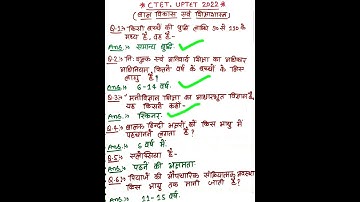 * CTET, UPTET 2022 *
(बाल विकास एवं शिक्षाशास्त्र)
Q.1:- किसी बच्चे की बुद्धि लब्धि 90 से 110 के
मध्य है, वह है-
Ans.:- सामान्य बुद्धि
Q.2:- निःशुल्क एवं अनिवार्य शिक्षा का अधिकार
अधिनियम कितने वर्ष के बच्चों के लिए
लागू है?
Ans.:- 6-14 वर्ष
Q.3:- मनोविज्ञान शिक्षा का आधारभूत विज्ञान है
यह किसने कहा-
Ans.:- स्किनर
Q.4:- बालक हिन्दी अक्षरों को किस आयु में
पहचानने लगता है?
Ans.:- 5 वर्ष में
Q.5:- एलेक्सिया है-
Ans.:- पढ़ने की अक्षमता
Q.6:- पियाजे की औपचारिक संक्रियात्मक अवस्था
किस आयु तक मानी जाती है?
Ans.:- 11-15 वर्ष